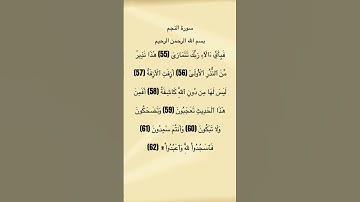 سورة النجم
بسم الله الرحمن الرحيم
فَبِأَيِّ ءَالَاءِ رَبِّكَ تَتَمَارَىٰ (55) هَٰذَا نَذِيرٌ
مِّنَ النُّذُرِ الْأُولَىٰ (56) أَزِفَتِ الْآزِفَةُ (57)
لَيْسَ لَهَا مِن دُونِ اللَّهِ كَاشِفَةٌ (58) أَفَمِنْ
هَٰذَا الْحَدِيثِ تَعْجَبُونَ (59) وَتَضْحَكُونَ
وَلَا تَبْكُونَ (60) وَأَنتُمْ سَٰمِدُونَ (61)
فَاسْجُدُوا لِلَّهِ وَاعْبُدُوا ۩ (62)